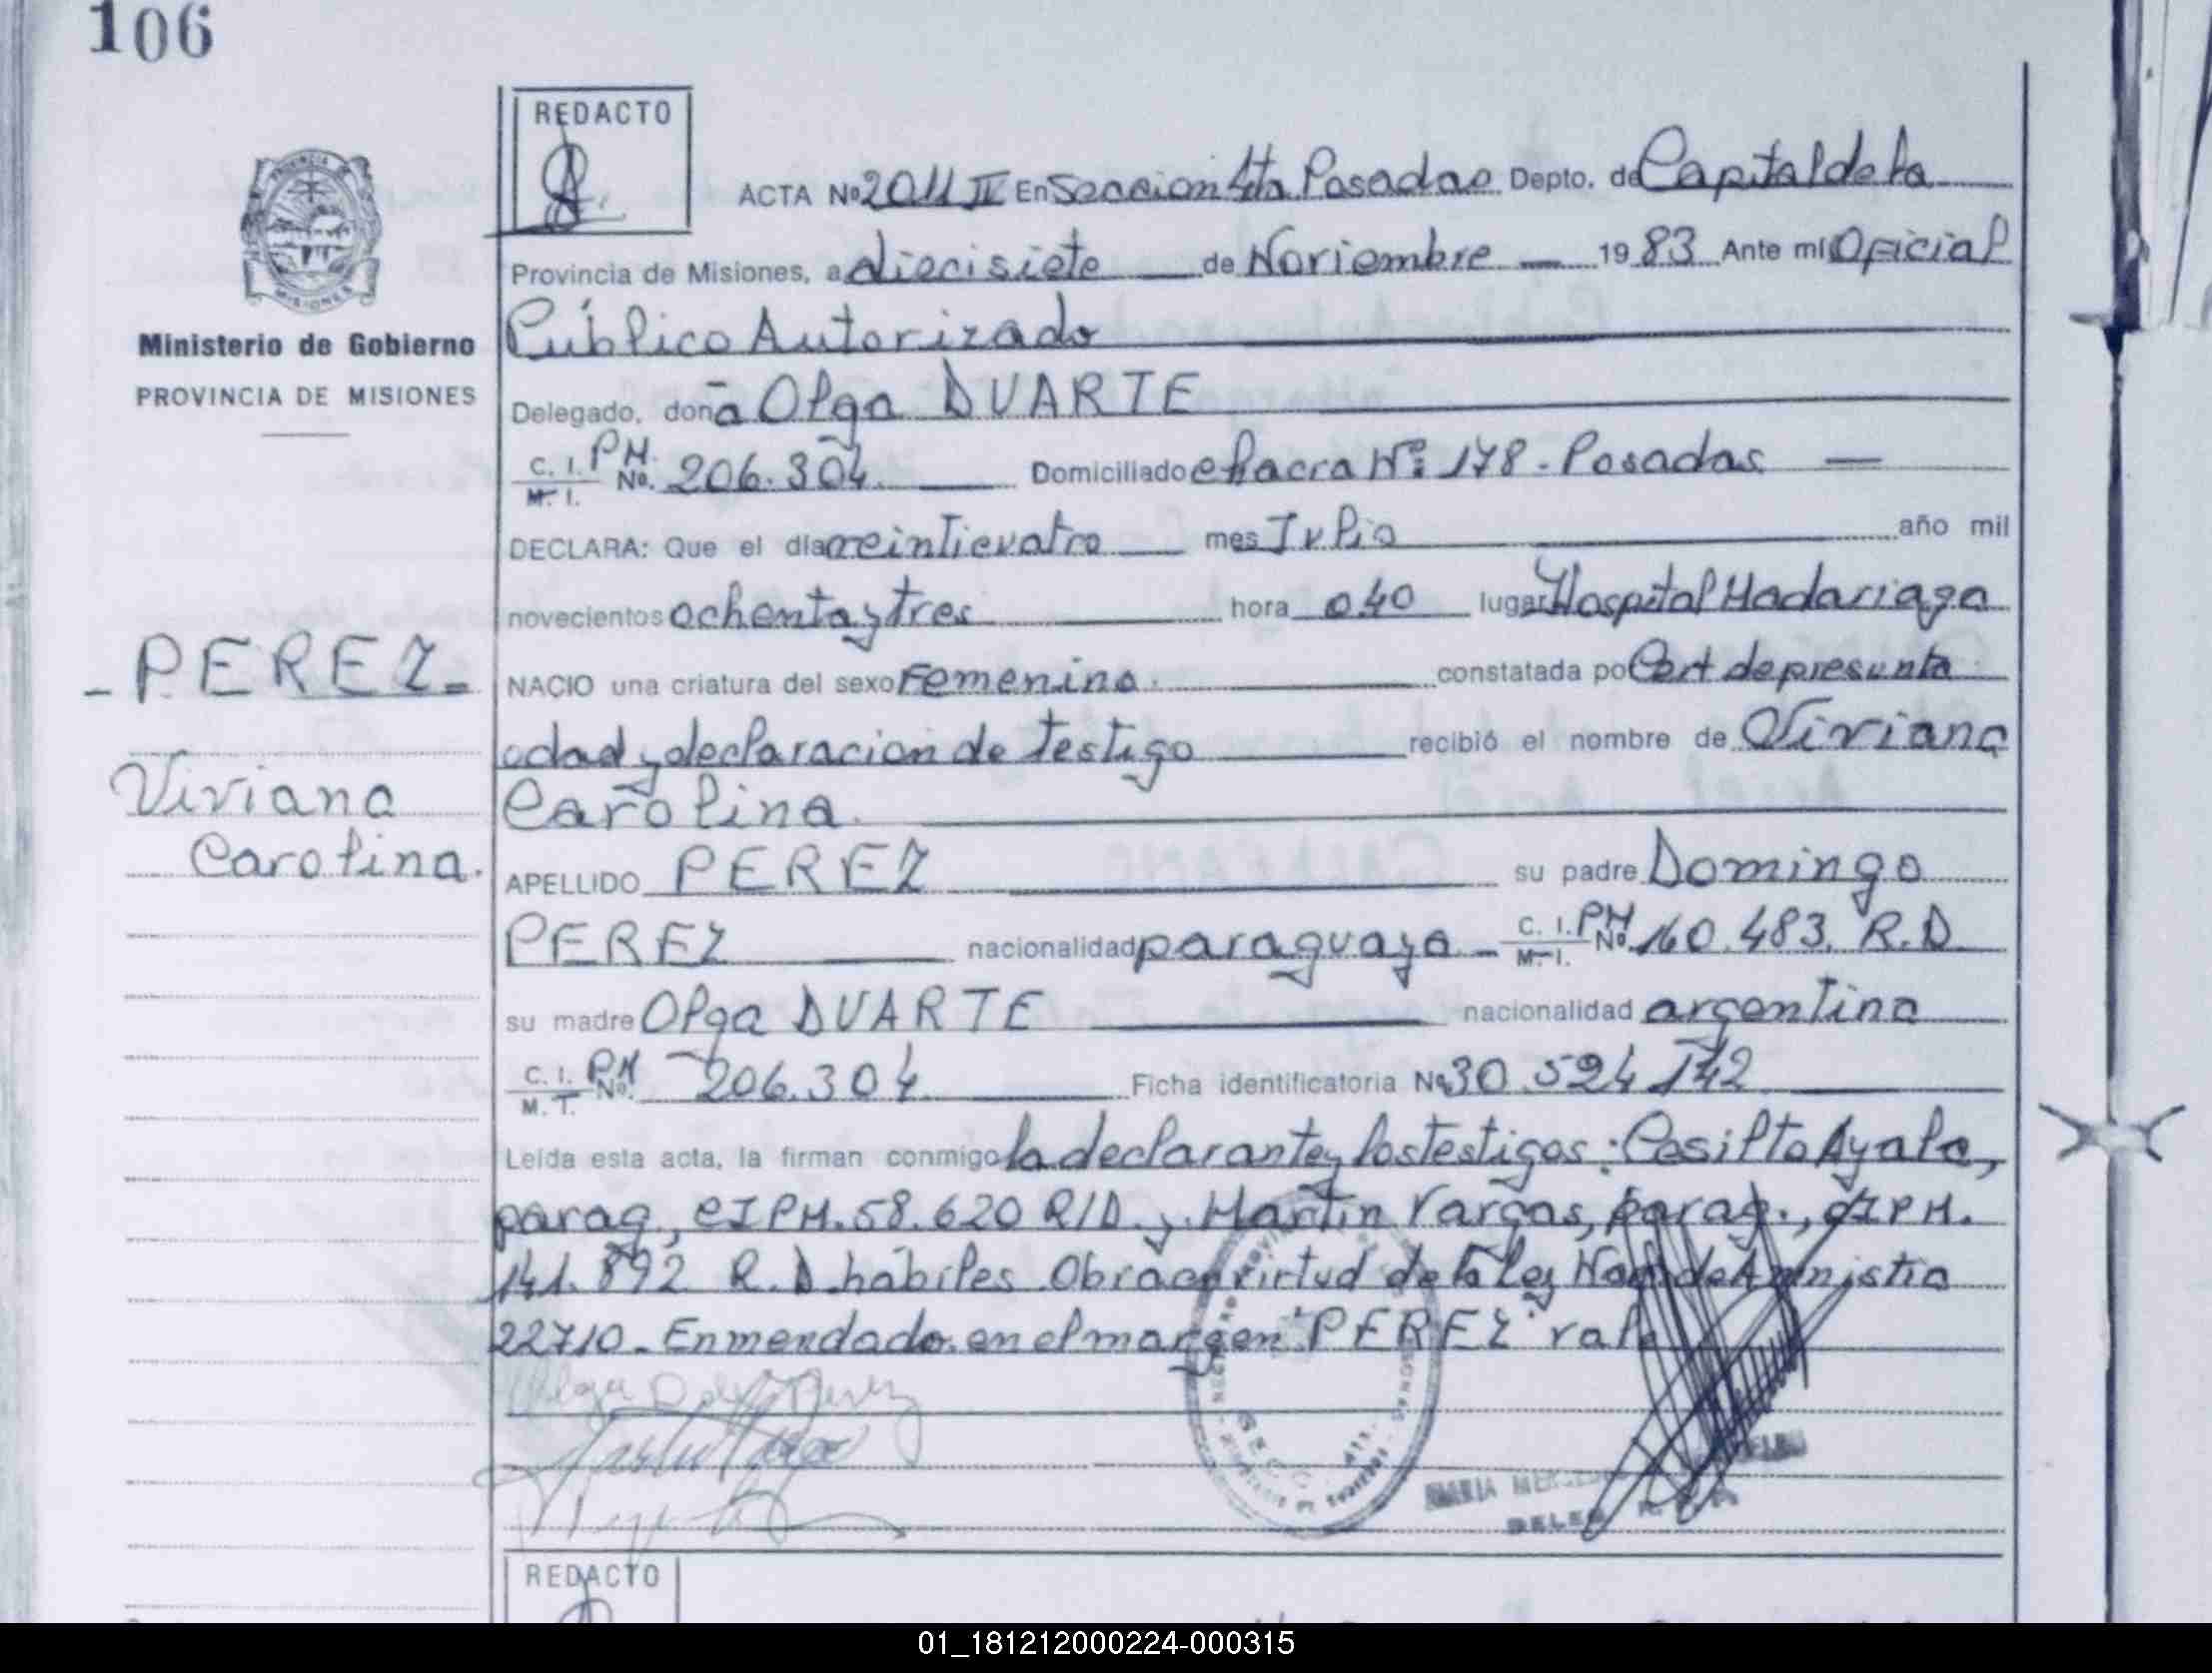 106
REDACTO
ACTA No 2011 IV En Seccion 4ta Posadas Depto. de Capital de la
Provincia de Misiones, a diecisiete de Noviembre 1983 Ante mí Oficial
Público Autorizado
Ministerio de Gobierno
PROVINCIA DE MISIONES
Delegado, doña Olga DUARTE
C. I. PM. No. 206.304. Domiciliado chacra Nº: 178 - Posadas —
M. I.
DECLARA: Que el día veinticuatro mes Julio año mil
novecientos ochenta y tres hora 0.40 lugar Hospital Madariaga
- PEREZ -
NACIO una criatura del sexo Femenino. constatada por Cert de presunta
edad y declaracion de testigo recibió el nombre de Viviana
Viviana
Carolina.
Carolina.
APELLIDO PEREZ su padre Domingo
PEREZ nacionalidad paraguaya - C. I. PM No. 160.483. R.D
M. I.
su madre Olga DUARTE nacionalidad argentina
C. I. PM No. 206.304 Ficha identificatoria No 30.524.142
M. I.
Leída esta acta, la firman conmigo la declarante y los testigos: Ayala,
parag., CIPM. 58.620 R/D. y Martin Vargas, parag., CIPM.
141.892 R.D. hábiles Obra en virtud de la Ley Nac de Amnistia
22710. Enmendado en el margen "PEREZ" vale
MARIA
DELEG
REDACTO
01_181212000224-000315